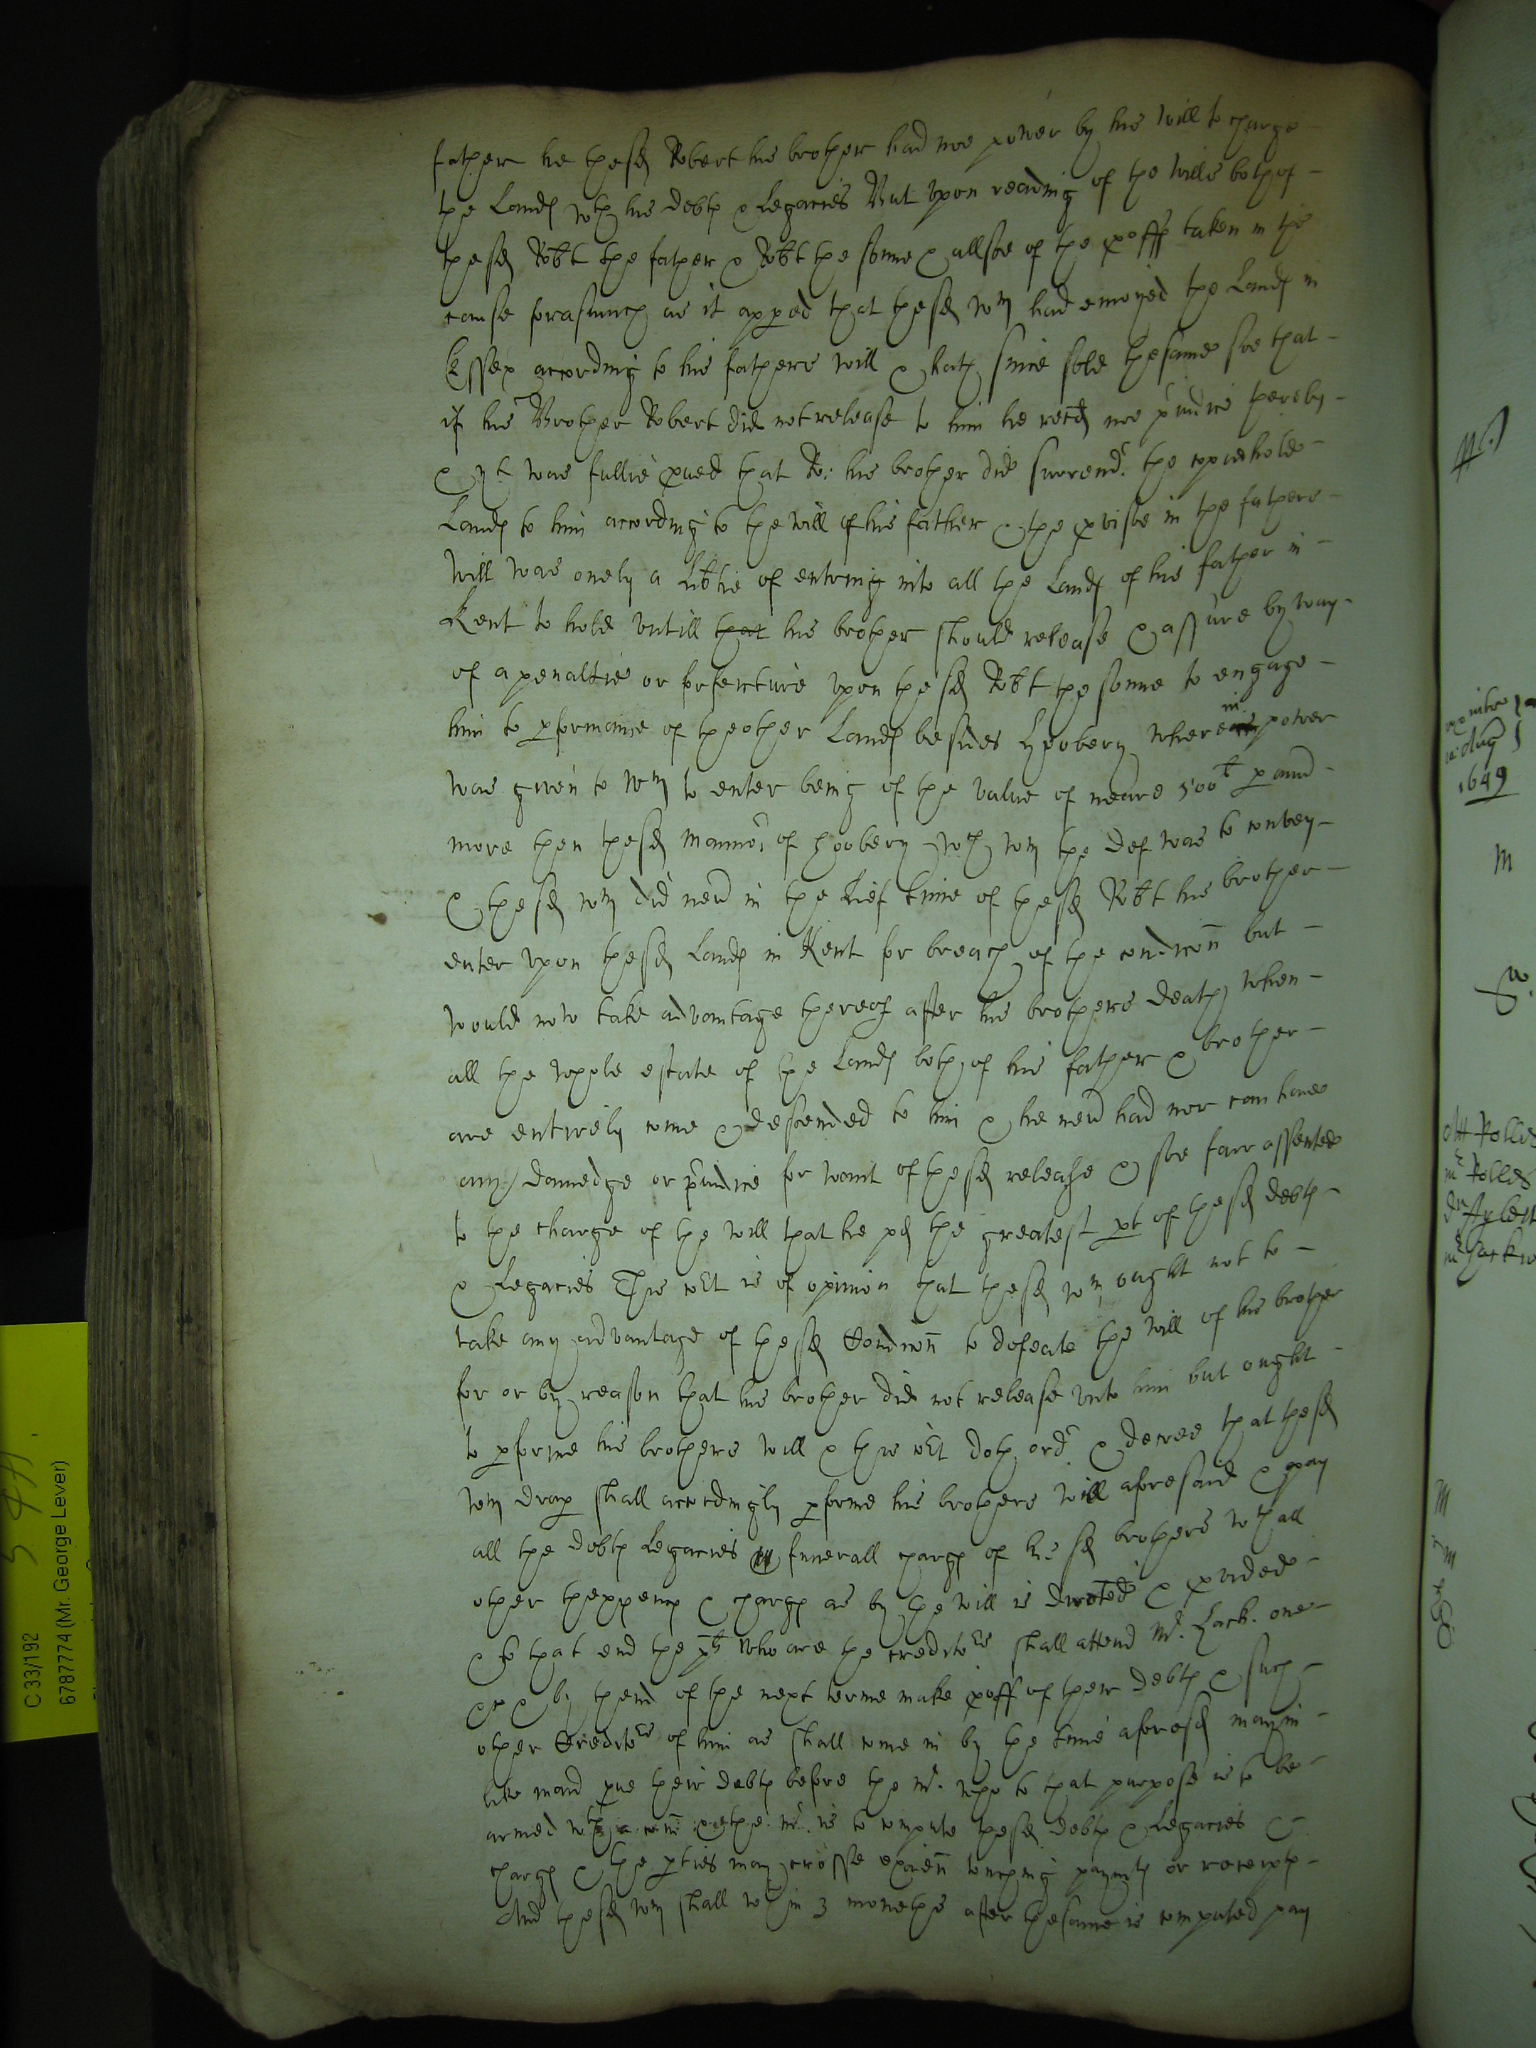 father he thesd Robert his brother had noe power by his will to charge
the Lands wth his debts & Legacies But vpon reading of the wills both of
thesd Robt the father & Robt the sonne & allsoe of the proffs taken in the
cause forasmuch as it appeed that thesd Wm had enioyed the Lands in
Essex according to his fathers will & hath since sold thesame soe that
if his Brother Robert did not release to him he recd noe piudice thereby
& yt was fullie pued that Ro: his brother did surrendr the copiehold
Lands to him according to the will of his father & the prviso in the fathers
will was onely a libtie of entring into all the Lands of his father in
Kent to hold vntill that his brother should release & assure by way
of a penaltie or forfeiture vpon thesd Robt the sonne to engage
him to pformance of theother Lands besides wherein power
was given to Wm to enter being of the value of neare 500l p annu
more then thesd mannor of wch Wm the def was to convey
& thesd Wm did nevr in the lief time of thesd Robt his brother
enter vpon thesd Lands in Kent for breach of the condicon but
would now take advantage thereof after his brothers death when
all the whole estate of the Lands both of his father & brother
are entirely come & descended to him & he nevr had nor can have
any damedge or piudice for want of thesd release & soe farr assented
to the charge of the will that he pd the greatest pt of thesd debts
& Legacies This cort is of opinion that thesd Wm ought not to
take any advantage of thesd Condicon to defeate the will of his brother
for or by reason that his brother did not release vnto him but ought
to pforme his brothers will & this cort doth ordr & decree that thesd
Wm Drap shall accordingly pforme his brothers will aforesaid & pay
all the debts Legacies funerall charges of his sd brothers wth all
other thexpences & charges as by the will is directed & pvided
& to that end the pts who are the creditors shall attend Mr. Lack. one
&c & by thend of the next terme make proff of their debts & such
other Creditors of him as shall come in by the time aforesd may in
like mannr pue their debts before the Mr. who to that purpose is to be
armed wth a com & the Mr. is to compute thesd debts & Legacies &
charges & the pties may crosse exaien touching paymts or receipts
And thesd Wm shall wth in 3 moneths after thesame is computed pay
1649
Mr Rolles
C 33/192
6787774 (Mr. George Lever)